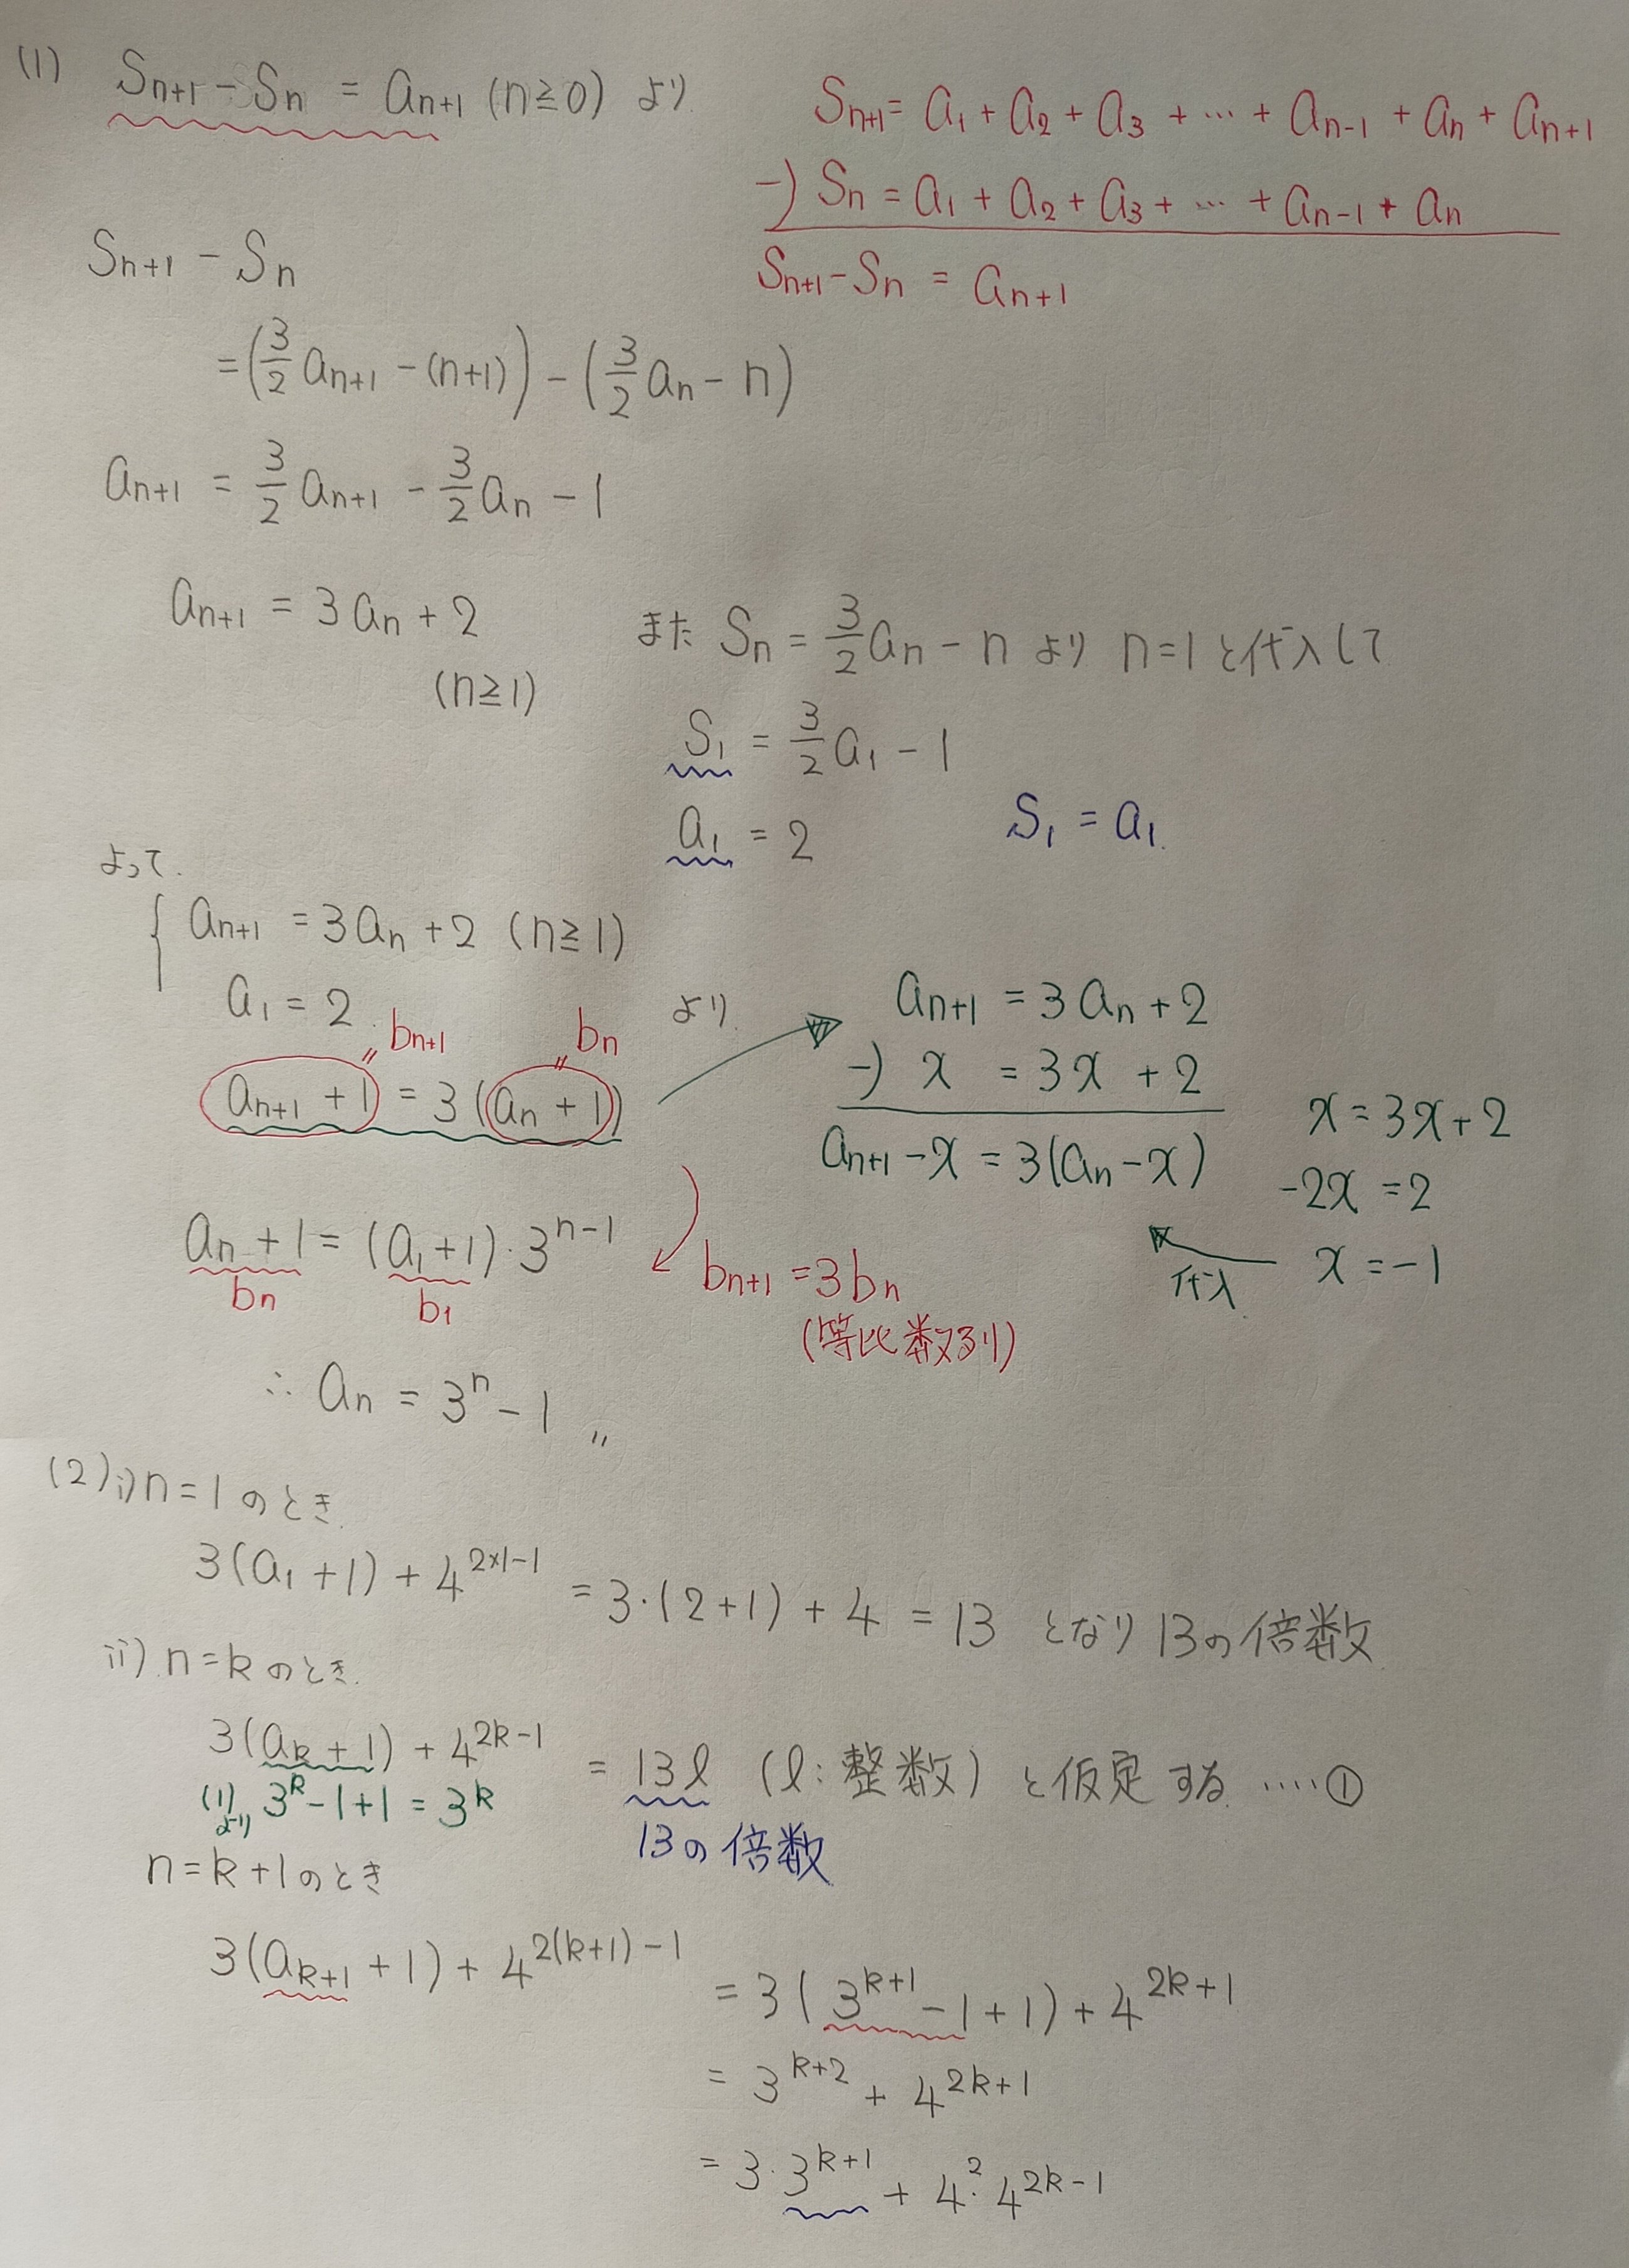 (1) Sn+1 - Sn = an+1 (n≧0) より
Sn+1 = a1 + a2 + a3 + … + an-1 + an + an+1
-) Sn = a1 + a2 + a3 + … + an-1 + an
Sn+1 - Sn = an+1
Sn+1 - Sn
= (3/2 an+1 - (n+1)) - (3/2 an - n)
an+1 = 3/2 an+1 - 3/2 an - 1
an+1 = 3an + 2
(n≧1)
また Sn = 3/2 an - n より n=1 を代入して
S1 = 3/2 a1 - 1
a1 = 2
S1 = a1
よって
{ an+1 = 3an + 2 (n≧1)
a1 = 2 より
bn+1 bn
an+1 + 1 = 3(an + 1)
an+1 = 3an + 2
-) x = 3x + 2
an+1 - x = 3(an - x)
x = 3x + 2
-2x = 2
x = -1
代入
an + 1 = (a1 + 1)・3^(n-1)
bn b1
bn+1 = 3bn
(等比数列)
∴ an = 3^n - 1 〃
(2) i) n=1 のとき
3(a1 + 1) + 4^(2×1-1) = 3・(2+1) + 4 = 13 となり 13の倍数
ii) n=k のとき
3(ak + 1) + 4^(2k-1) = 13ℓ (ℓ:整数) と仮定する ‥‥①
(1)より 3^k - 1 + 1 = 3^k
13の倍数
n=k+1 のとき
3(ak+1 + 1) + 4^(2(k+1)-1) = 3(3^(k+1) - 1 + 1) + 4^(2k+1)
= 3^(k+2) + 4^(2k+1)
= 3・3^(k+1) + 4^2・4^(2k-1)